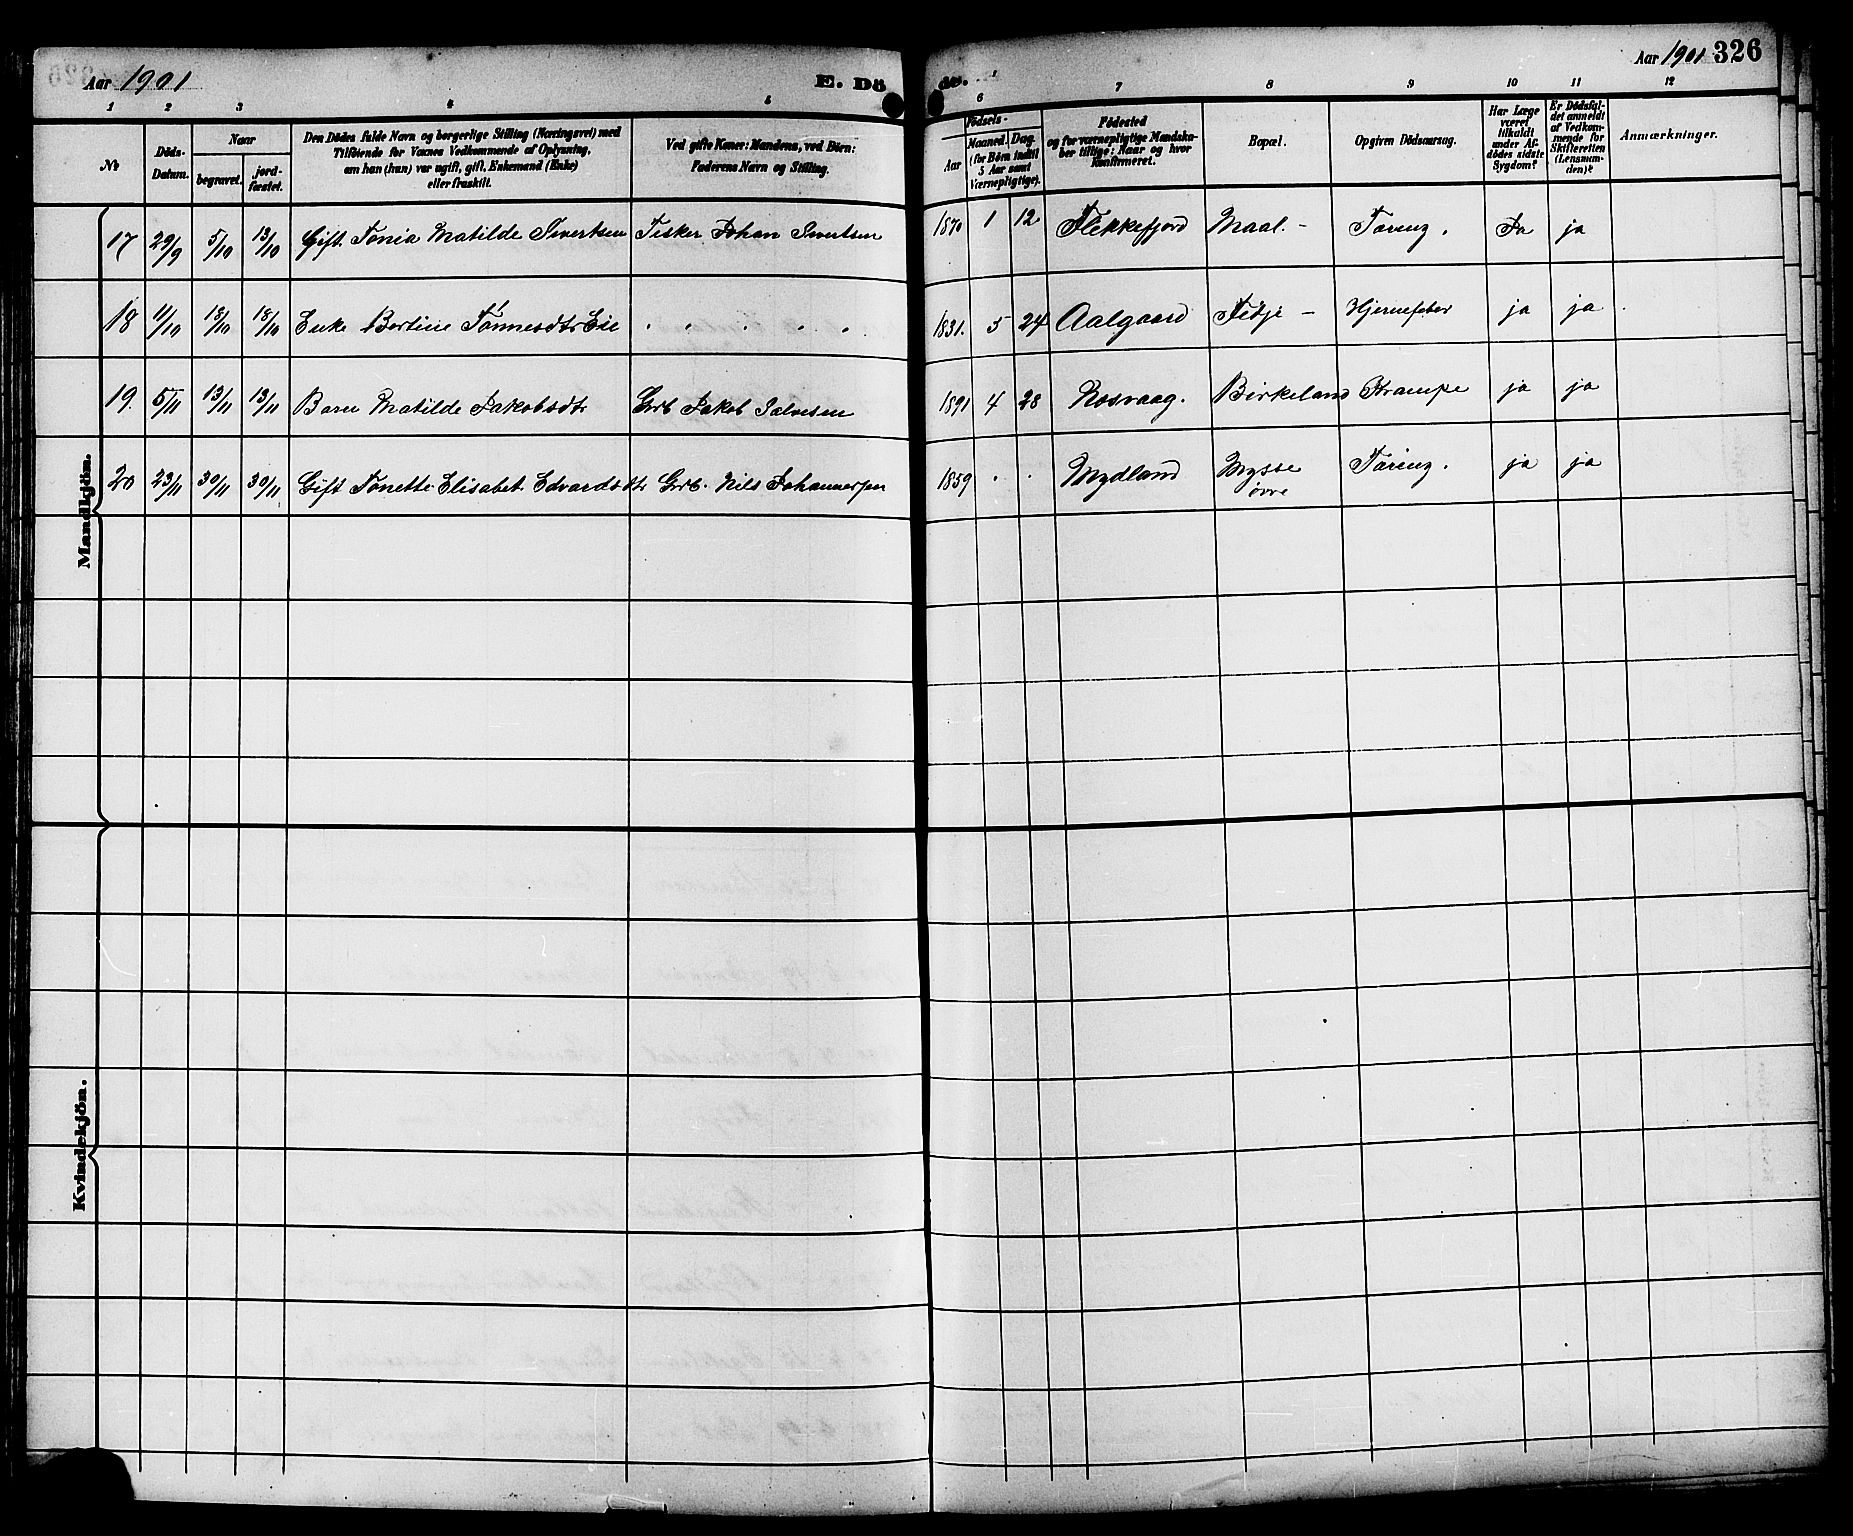 Aar 1901
E. Dö
de.
Aar 1901 326
1 2 3 4 5 6 7 8 9 10 11 12
№
Döds-
Datum.
Naar
begravet.
jord-
fæstet.
Den Dödes fulde Navn og borgerlige Stilling (Næringsvei) med
Tilföiende for Voxnes Vedkommende af Oplysning,
om han (hun) var ugift, gift, Enkemand (Enke)
eller fraskilt.
Ved gifte Koner: Mandens, ved Börn:
Faderens Navn og Stilling.
Födsels-
Aar
Maaned. Dag.
(for Börn indtil
5 Aar samt
Værnepligtige).
Födested
og for værnepligtige Mandska-
ber tillige: Naar og hvor
konfirmeret.
Bopæl.
Opgiven Dödsaarsag.
Har Læge
været
tilkaldt
under Af-
dödes sidste
Sygdom?
Er Dödsfal-
det anmeldt
af Vedkom-
mende for
Skifteretten
(Lensman-
den)?
Anmærkninger.
17 29/9 5/10 13/10 Gift Tonia Matilde Sivertsen Fisker Johan Sivertsen 1870 1 12 Flekkefjord Maal. - Tæring. Ja ja
18 11/10 18/10 18/10 Enke Bertine Tönnesdtr Eie " " " " " 1831. 5 24 Aalgaard Fidje - Hjernefeber ja ja
19. 5/11 13/11 13/11 Barn Matilde Jakobsdtr Grb Jakob Salvesen 1891 4 28 Rosvaag. Birkeland Krampe ja ja
20 23/11 30/11 30/11 Gift Tonette Elisabet Edvardsdtr Grb. Nils Johannesen 1859 " " Mydland Mysse övre Tæring. ja ja
Mandkjön.
Kvindekjön.